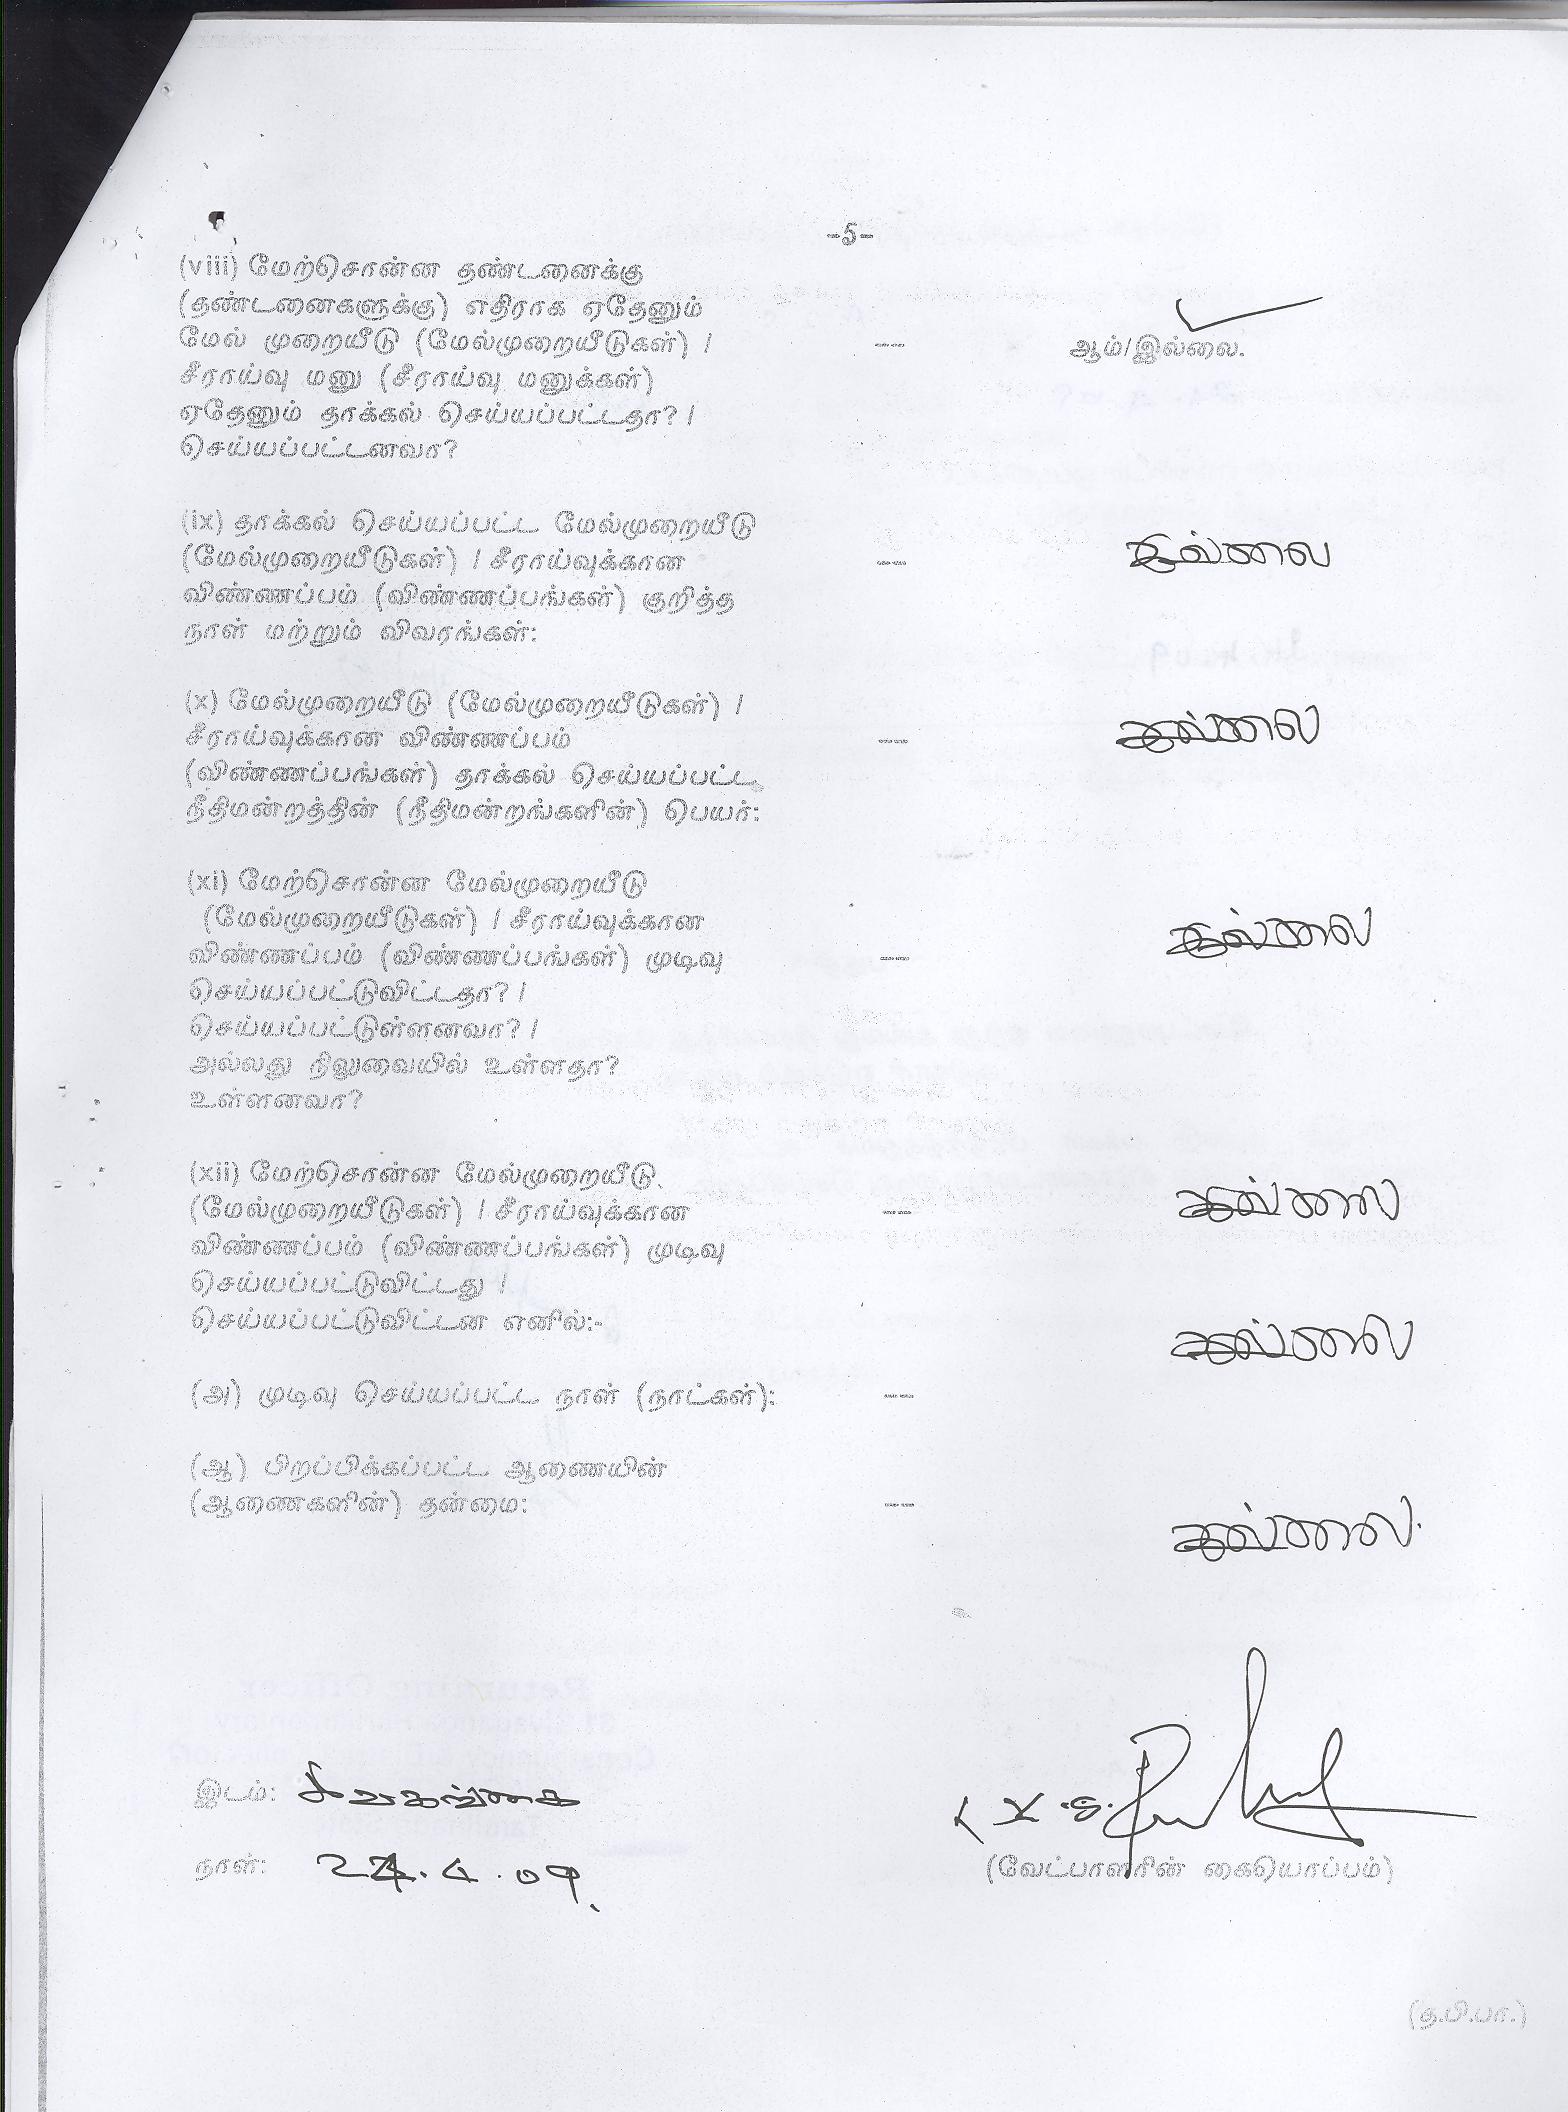 -5-
(viii) மேற்சொன்ன தண்டனைக்கு
(தண்டனைகளுக்கு) எதிராக ஏதேனும்
மேல் முறையீடு (மேல்முறையீடுகள்) / -- ஆம்/இல்லை.
சீராய்வு மனு (சீராய்வு மனுக்கள்)
ஏதேனும் தாக்கல் செய்யப்பட்டதா? /
செய்யப்பட்டனவா?
(ix) தாக்கல் செய்யப்பட்ட மேல்முறையீடு
(மேல்முறையீடுகள்) / சீராய்வுக்கான -- இல்லை
விண்ணப்பம் (விண்ணப்பங்கள்) குறித்த
நாள் மற்றும் விவரங்கள்:
(x) மேல்முறையீடு (மேல்முறையீடுகள்) /
சீராய்வுக்கான விண்ணப்பம் -- இல்லை
(விண்ணப்பங்கள்) தாக்கல் செய்யப்பட்ட
நீதிமன்றத்தின் (நீதிமன்றங்களின்) பெயர்:
(xi) மேற்சொன்ன மேல்முறையீடு
(மேல்முறையீடுகள்) / சீராய்வுக்கான இல்லை
விண்ணப்பம் (விண்ணப்பங்கள்) முடிவு --
செய்யப்பட்டுவிட்டதா? /
செய்யப்பட்டுள்ளனவா? /
அல்லது நிலுவையில் உள்ளதா?
உள்ளனவா?
(xii) மேற்சொன்ன மேல்முறையீடு.
(மேல்முறையீடுகள்) / சீராய்வுக்கான -- இல்லை
விண்ணப்பம் (விண்ணப்பங்கள்) முடிவு
செய்யப்பட்டுவிட்டது /
செய்யப்பட்டுவிட்டன எனில்:- இல்லை
(அ) முடிவு செய்யப்பட்ட நாள் (நாட்கள்): --
(ஆ) பிறப்பிக்கப்பட்ட ஆணையின்
(ஆணைகளின்) தன்மை: -- இல்லை.
இடம்: சிவகங்கை
நாள்: 24.4.09.
(வேட்பாளரின் கையொப்பம்)
(த.பி.பா.)